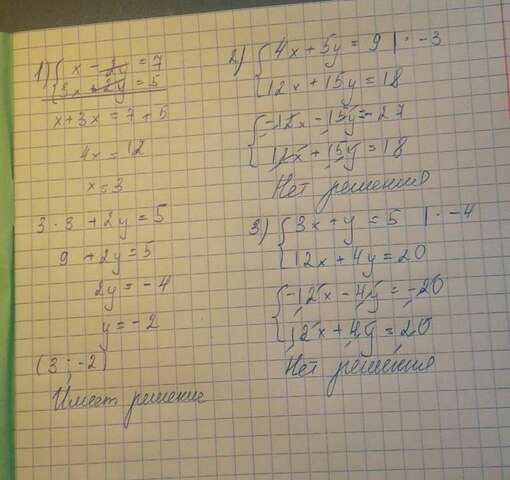 1) { x - 2y = 7
{ 3x + 2y = 5
x + 3x = 7 + 5
4x = 12
x = 3
3 · 3 + 2y = 5
9 + 2y = 5
2y = -4
y = -2
(3 ; -2)
Имеет решение
2) { 4x + 5y = 9 | · -3
{ 12x + 15y = 18
{ -12x - 15y = -27
{ 12x + 15y = 18
Нет решения
3) { 3x + y = 5 | · -4
{ 12x + 4y = 20
{ -12x - 4y = -20
{ 12x + 4y = 20
Нет решения